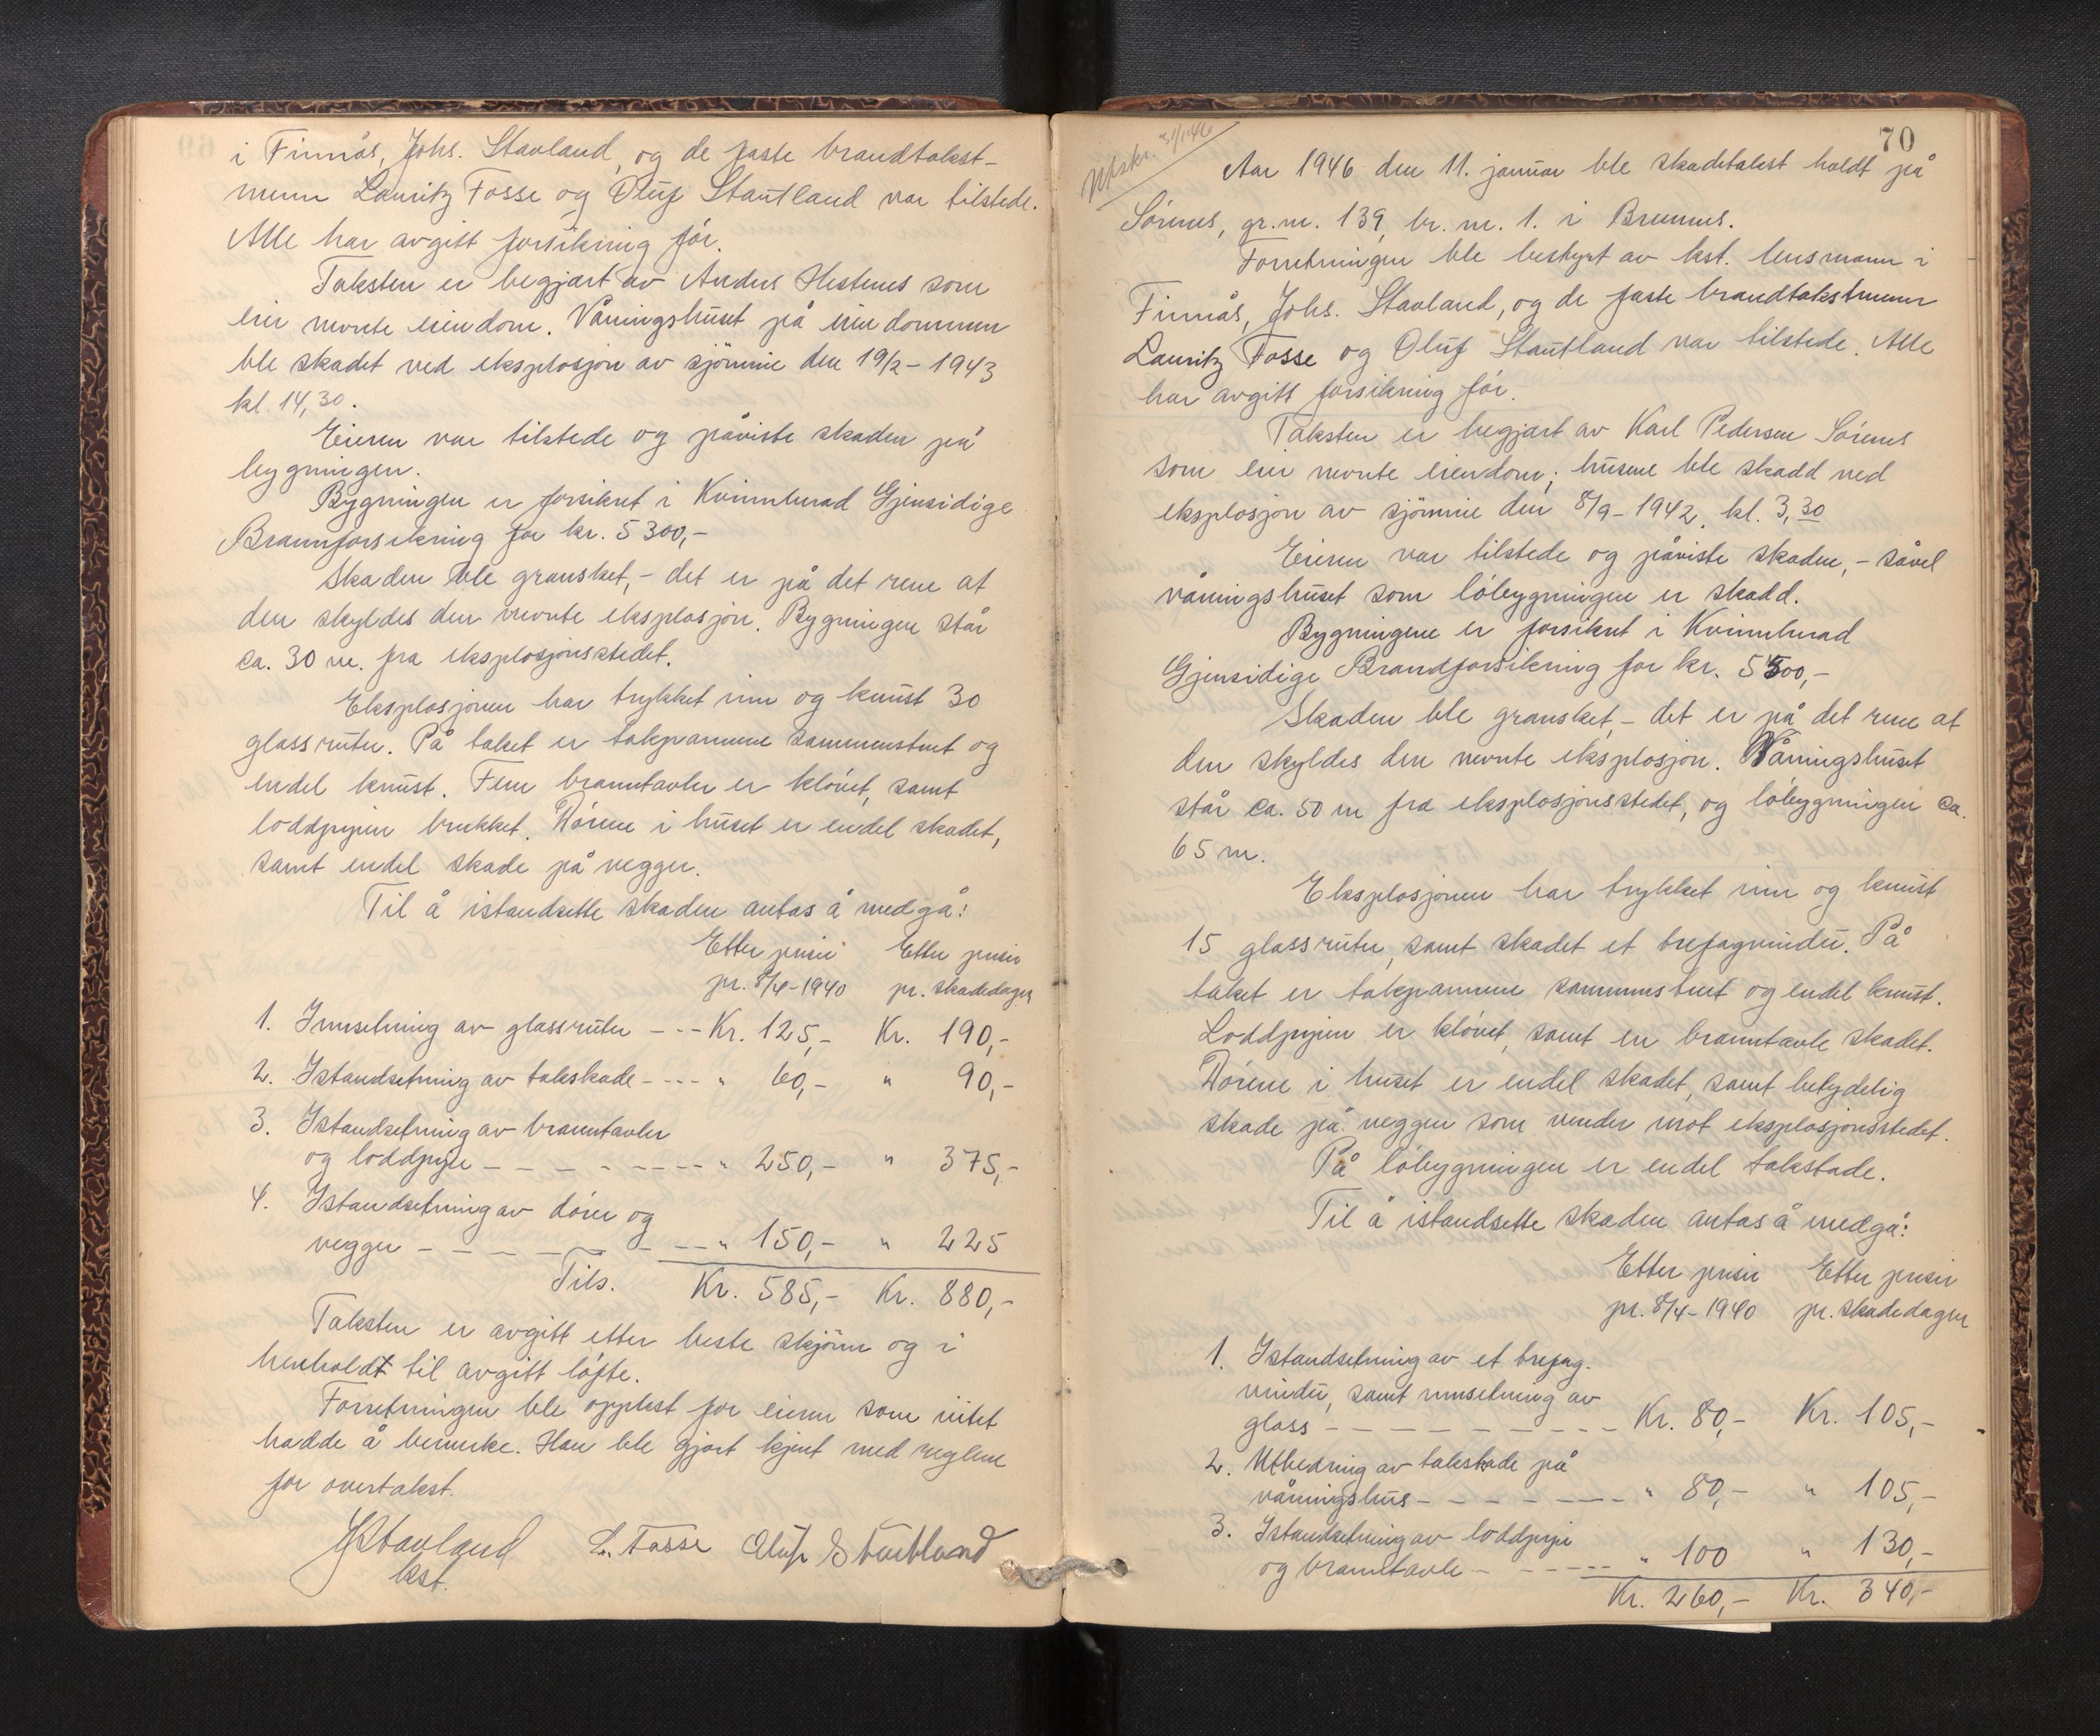 i Finnås, Johs. Stavland, og de faste brandtakst-
menn Lauritz Fosse og Oluf Stautland var tilstede.
Alle har avgitt forsikring før.
Taksten er begjært av Anders Hestenes som
eier nevnte eiendom. Våningshuset på eiendommen
ble skadet ved eksplosjon av sjømine den 19/2 - 1943
kl. 14,30.
Eieren var tilstede og påviste skaden på
bygningen.
Bygningen er forsikret i Kvinnherad Gjensidige
Brannforsikring for kr. 5300,-
Skaden ble gransket, - det er på det rene at
den skyldes den nevnte eksplosjon. Bygningen står
ca. 30 m. fra eksplosjonsstedet.
Eksplosjonen har trykket inn og knust 30
glassruter. På taket er takpannene sammenstuet og
endel knust. Fem branntavler er kløvet, samt
loddpipen brukket. Dørene i huset er endel skadet,
samt endel skade på vegger.
Til å istandsette skaden antas å medgå:
Etter priser Etter priser
pr. 8/4-1940 pr. skadedagen
1. Innsetning av glassruter - - - Kr. 125,- Kr. 190,-
2. Istandsetning av takskade - - - - " 60,- " 90,-
3. Istandsetning av branntavler
og loddpipe - - - - - - - - - " 250,- " 375,-
4. Istandsetning av dører og
vegger - - - - - - - - " 150,- " 225
Tils. Kr. 585,- Kr. 880,-
Taksten er avgitt etter beste skjønn og i
henholdt til avgitt løfte.
Forretningen ble opplest for eieren som intet
hadde å bemerke. Han ble gjort kjent med reglene
for overtakst.
JStavland L. Fosse Oluf Stautland
kst.
70
Utskr. 31/1 46
Aar 1946 den 11. januar ble skadetakst holdt på
Sørenes, gr.nr. 139, br. nr. 1. i Bremnes.
Forretningen ble bestyrt av kst. lensmann i
Finnås, Johs. Stavland, og de faste brandtakstmenn
Lauritz Fosse og Oluf Stautland var tilstede. Alle
har avgitt forsikring før.
Taksten er begjært av Karl Pedersen Sørenes
som eier nevnte eiendom; husene ble skadd ved
eksplosjon av sjømine den 8/9 - 1942. kl. 3,30
Eieren var tilstede og påviste skaden, - såvel
våningshuset som løbygningen er skadd.
Bygningene er forsikret i Kvinnherad
Gjensidige Brandforsikring for kr. 5500,-
Skaden ble gransket, - det er på det rene at
den skyldes den nevnte eksplosjon. Våningshuset
står ca. 50 m fra eksplosjonsstedet, og løbygningen ca.
65 m.
Eksplosjonen har trykket inn og knust
15 glassruter, samt skadet et trefagvindu. På
taket er takpannene sammenstuet og endel knust.
Loddpipen er kløvet, samt en branntavle skadet.
Dørene i huset er endel skadet, samt betydelig
skade på veggen som vender mot eksplosjonsstedet.
På løbygningen er endel takskade.
Til å istandsette skaden antas å medgå:
Etter priser Etter priser
pr. 8/4-1940 pr. skadedagen
1. Istandsetning av et trefag-
vindu, samt innsetning av
glass - - - - - - - - - - Kr. 80,- Kr. 105,-
2. Utbedring av takskade på
våningshus - - - - - - - - " 80,- " 105,-
3. Istandsetning av loddpipe
og branntavle - - - - - - " 100 " 130,-
Kr. 260,- Kr. 340,-